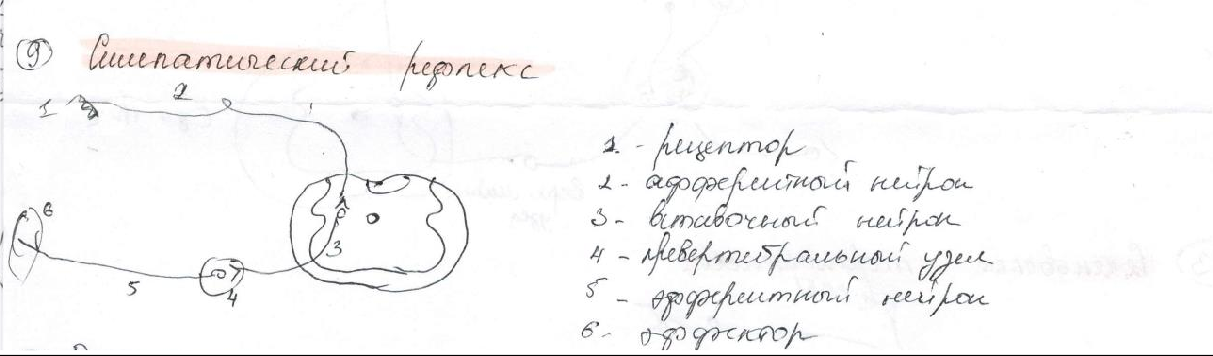 9 Симпатический рефлекс
1 2
6
3
5 4
1 - рицептор
2 - афферентный нейрон
3 - вставочный нейрон
4 - превертебральный узел
5 - эфферентный нейрон
6 - эффектор